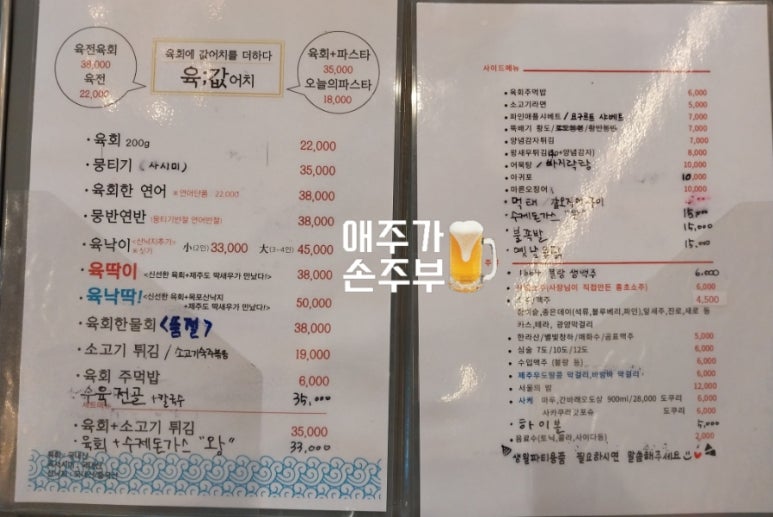 육전육회
38,000
육전
22,000
육회에 값어치를 더하다
육;값어치
육회+파스타
35,000
오늘의파스타
18,000
· 육회 200g 22,000
· 뭉티기 (사시미) 35,000
· 육회한 연어 ※연어단품 22,000 38,000
· 뭉반연반 (뭉티기반절 연어반절) 38,000
· 육낙이 小(2인) 33,000 大(3~4인) 45,000
육딱이 <신선한 육회+제주도 딱새우가 만났다!> 38,000
육낙딱! <신선한 육회+목포산낙지
+제주도 딱새우가 만났다!> 50,000
· 육회한물회 <품절> 38,000
· 소고기 튀김 / 소고기숙주볶음 19,000
· 육회 주먹밥 6,000
수육전골 +칼국수 35,000
· 육회+소고기 튀김 35,000
· 육회+수제돈가스 "왕" 33,000
육회 : 국내산
애주가
손주부
사이드메뉴
· 육회주먹밥 6,000
· 소고기라면 5,000
· 파인애플샤베트 / 요구르트 샤베트 7,000
· 뚝배기 황도/ 7,000
· 양념감자튀김 7,000
· 왕새우튀김 양념감자) 8,000
· 어묵탕 / 바지락탕 10,000
· 아귀포 10,000
· 마른오징어 10,000
· 먹태
· 수제돈가스 "왕"
· 불족발 15,000
· 옛날통닭 15,000
생맥주 6,000
(사장님이 직접만든 홍초소주) 6,000
· 소주/맥주 4,500
참이슬,좋은데이(석류,블루베리,파인),잎새주,진로,새로 등
카스,테라, 광양막걸리
· 한라산/별빛청하/매화수/곰표맥주 5,000
· 심술 7도/10도/12도 6,000
· 수입맥주 (블랑 등) 6,000
· 제주우도땅콩 막걸리,바밤바 막걸리 6,000
· 서울의 밤 12,000
· 사케 마루,간바레오도상 900ml/28,000 도쿠리 6,000
사카쿠라고호슈 도쿠리 6,000
· 하이볼 5,000
· 음료수(토닉,콜라,사이다등) 2,000
생일파티용품 필요하시면 말씀해주세요